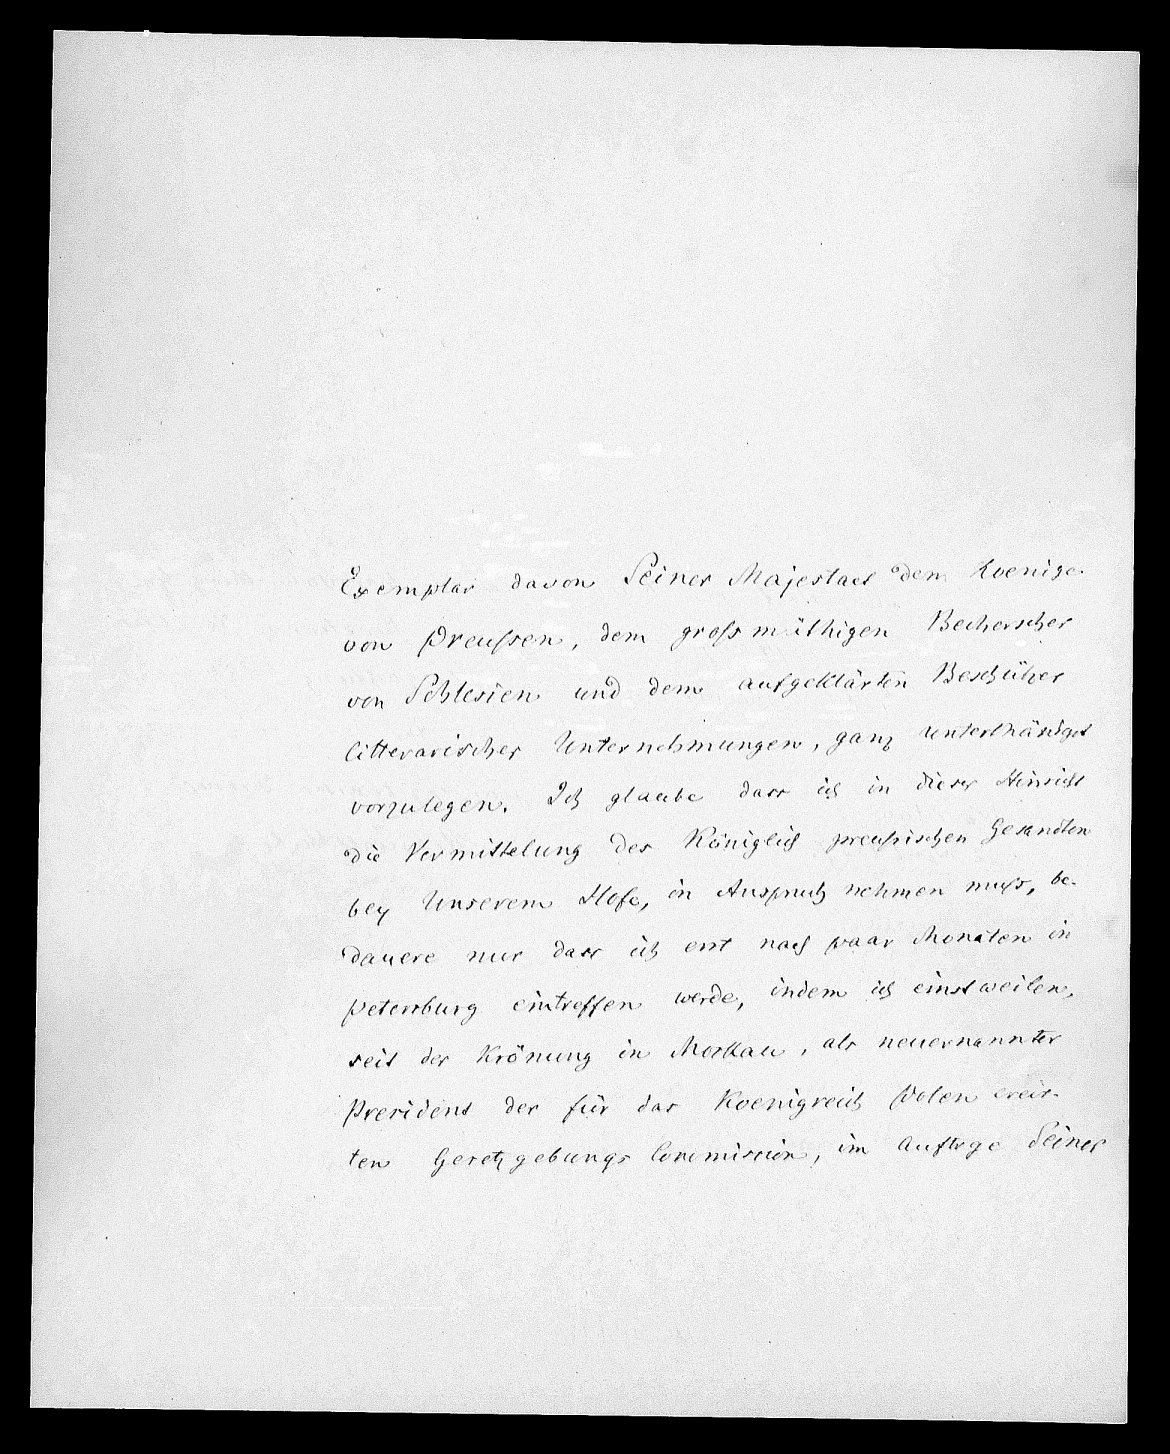 Exemplar davon Seiner Majestaet dem Koenige
von Preussen, dem grossmüthigen Beherscher
von Schlesien und dem aufgeklärten Beschützer
litterarischer Unternehmungen, ganz unterthänigst
vorzulegen. Ich glaube dass ich in dieser Hinsicht
die Vermittelung des Königlich preussischen Gesandten
bey Unserem Hofe, in Anspruch nehmen muss, be-
dauere nur dass ich erst nach paar Monaten in
Petersburg eintreffen werde, indem ich einstweilen,
seit der Krönung in Moskau, als neuernannter
President der für das Koenigreich Polen creir-
ten Gesetzgebungs Commission, im Auftrge Seiner